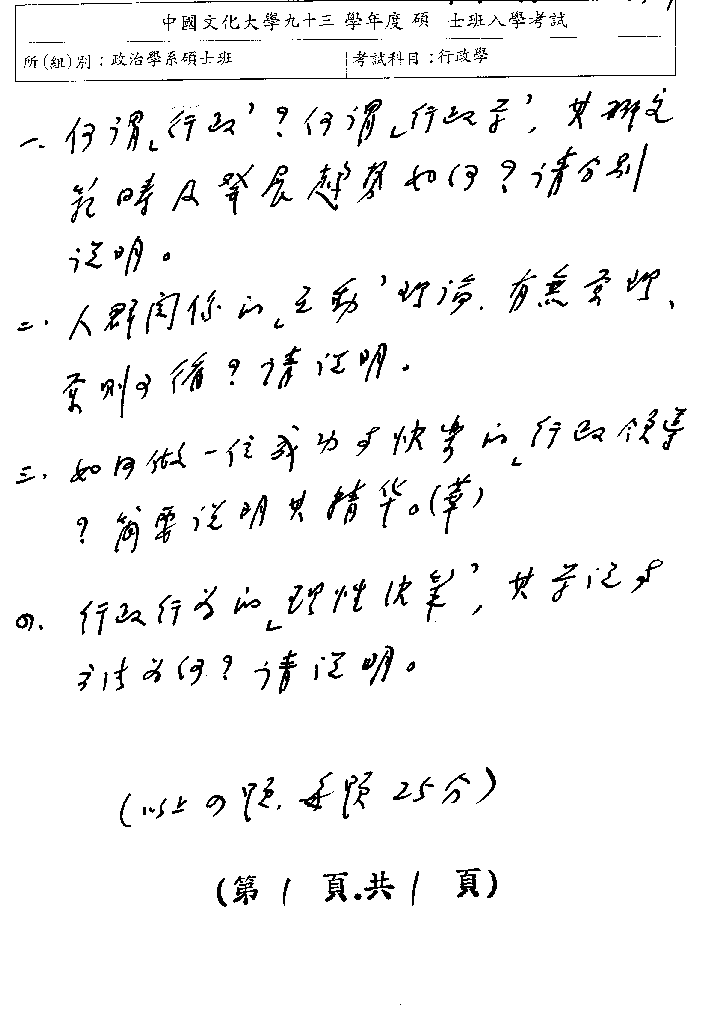 中國文化大學九十三 學年度 碩 士班入學考試
所(組)別：政治學系碩士班 考試科目：行政學
一、何謂「行政」？何謂「行政学」，其研究
範疇及發展趨勢如何？請分别
說明。
二、人群関係的「互動」理論、有無
原則可循？請說明。
三、如何做一位成功与快樂的「行政領導
？簡要說明其精华。(華)
四、行政行為的「理性決策」，其学說与
方法為何？請說明。
(以上四題，每題25分)
(第 1 頁.共 1 頁)